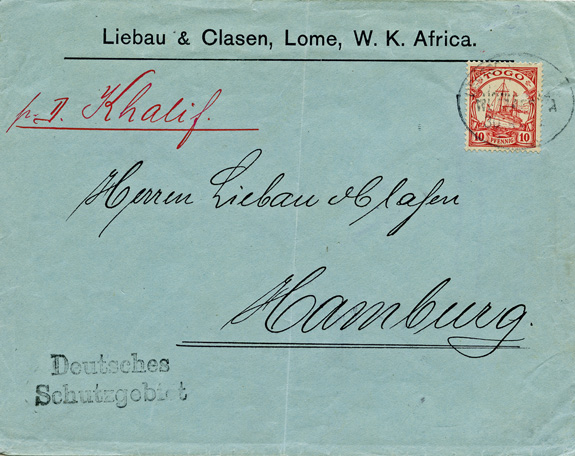 Liebau & Clasen, Lome, W. K. Africa.
TOGO
10 PFENNIG 10
p. D. Khalif.
Herren Liebau & Clasen
Hamburg.
Deutsches
Schutzgebiet